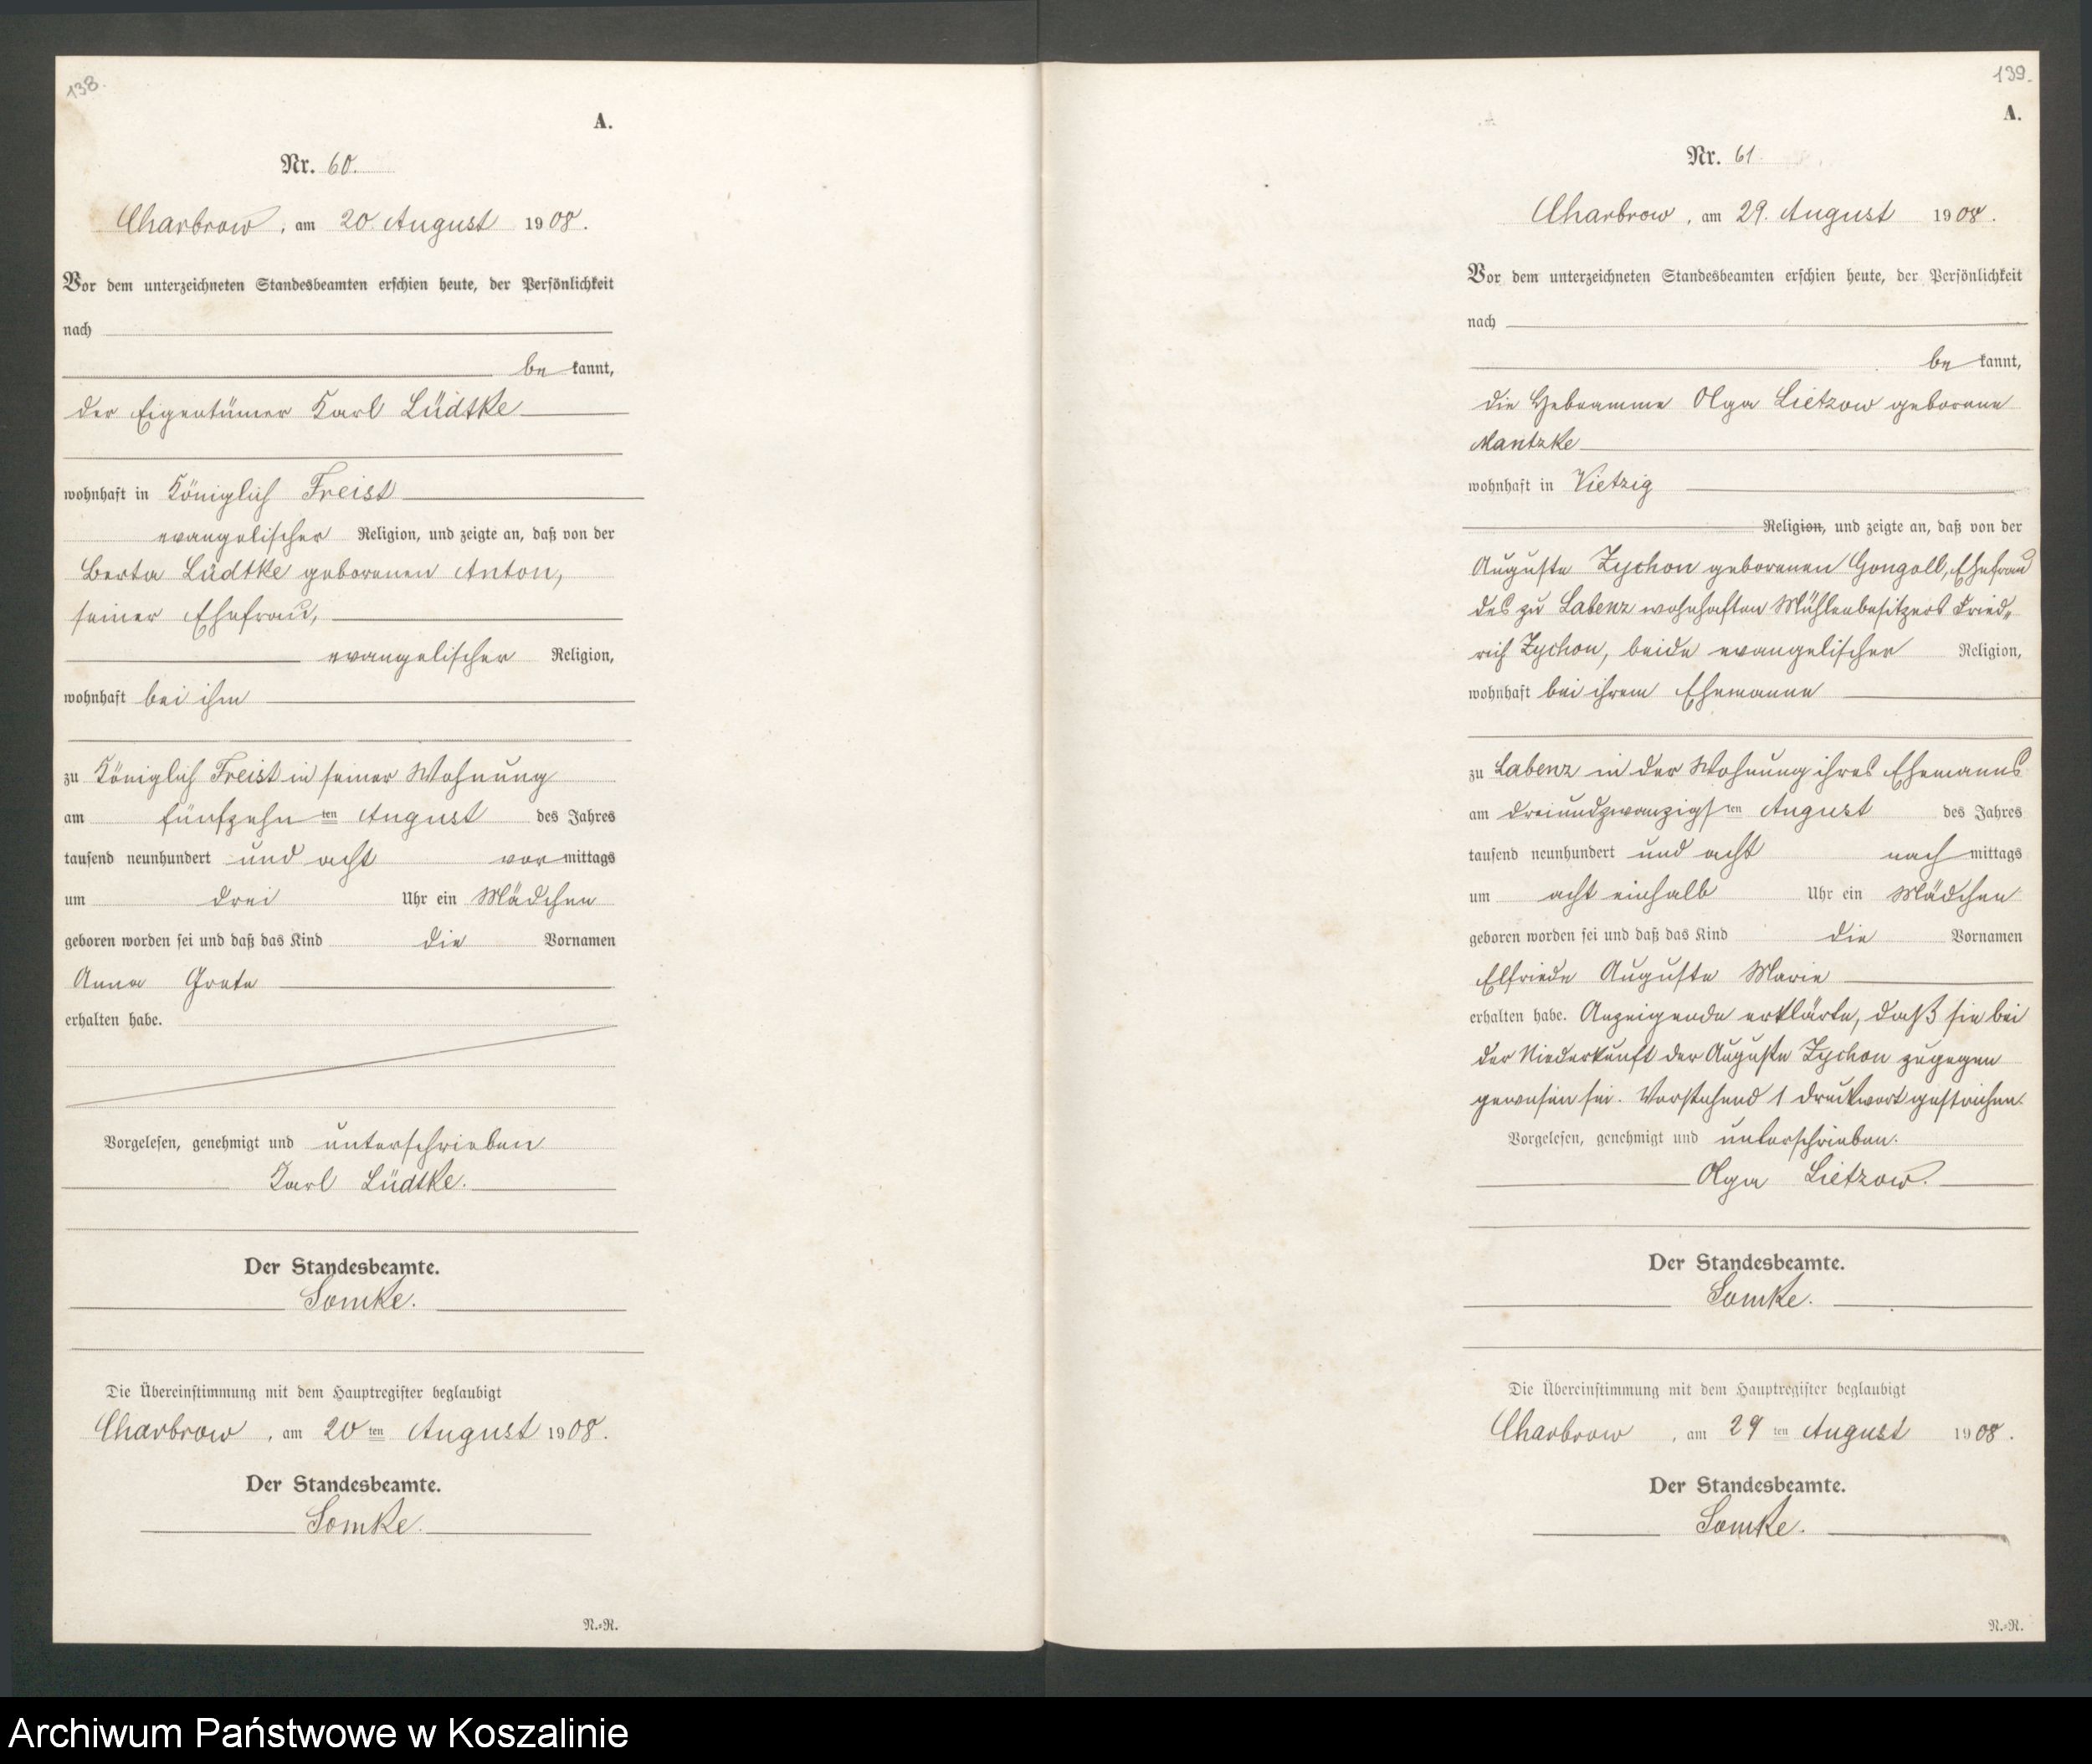 138.
A.
Nr. 60.
Charbrow, am 20. August 1908.
Vor dem unterzeichneten Standesbeamten erschien heute, der Persönlichkeit
nach
be kannt,
der Eigentümer Karl Lüdtke
wohnhaft in Königlich Freist
evangelischer Religion, und zeigte an, daß von der
Berta Lüdtke geborenen Anton,
seiner Ehefrau,
evangelischer Religion,
wohnhaft bei ihm
zu Königlich Freist in seiner Wohnung
am fünfzehn ten August des Jahres
tausend neunhundert und acht vor mittags
um drei Uhr ein Mädchen
geboren worden sei und daß das Kind die Vornamen
Anna Grete
erhalten habe.
Vorgelesen, genehmigt und unterschrieben
Karl Lüdtke.
Der Standesbeamte.
Somke.
Die Übereinstimmung mit dem Hauptregister beglaubigt
Charbrow, am 20 ten August 1908.
Der Standesbeamte.
Somke.
N.=R.
139.
A.
Nr. 61.
Charbrow, am 29. August 1908.
Vor dem unterzeichneten Standesbeamten erschien heute, der Persönlichkeit
nach
be kannt,
die Hebeamme Olga Lietzow geborene
Mantzke
wohnhaft in Vietzig
Religion, und zeigte an, daß von der
Auguste Zychon geborenen Gongoll, Ehefrau
des zu Labenz wohnhaften Mühlenbesitzers Fried„
rich Zychon, beide evangelischer Religion,
wohnhaft bei ihrem Ehemanne
zu Labenz in der Wohnung ihres Ehemanns
am dreiundzwanzigs ten August des Jahres
tausend neunhundert und acht nach mittags
um acht einhalb Uhr ein Mädchen
geboren worden sei und daß das Kind die Vornamen
Elfriede Auguste Marie
erhalten habe. Anzeigende erklärte, daß sie bei
der Niederkunft der Auguste Zychon zugegen
gewesen sei. Vorstehend 1 Druckwort gestrichen.
Vorgelesen, genehmigt und unterschrieben.
Olga Lietzow.
Der Standesbeamte.
Somke.
Die Übereinstimmung mit dem Hauptregister beglaubigt
Charbrow, am 29 ten August 1908.
Der Standesbeamte.
Somke.
N.=R.
Archiwum Państwowe w Koszalinie